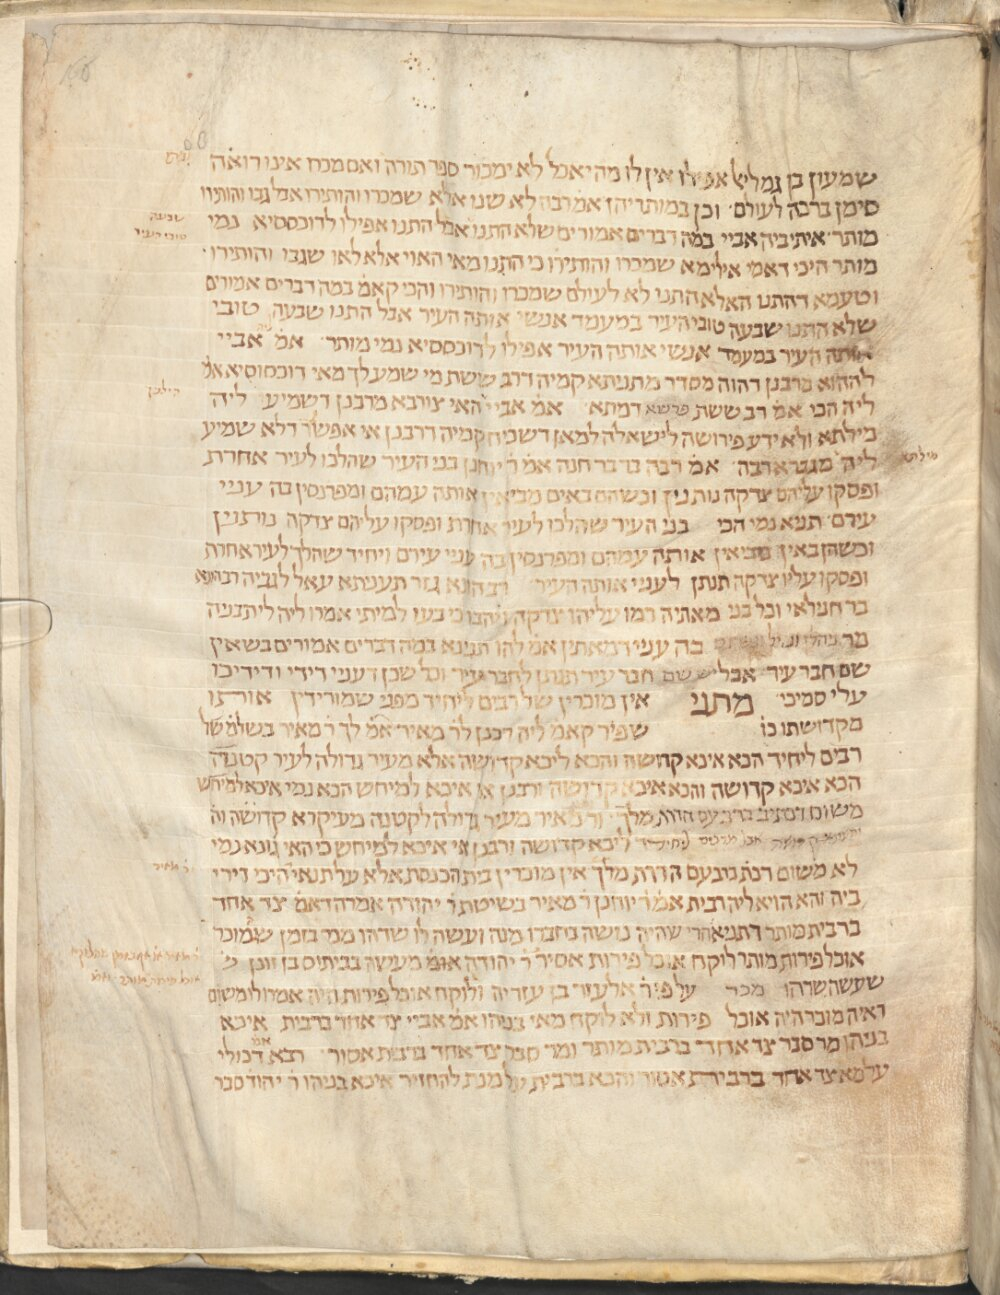 שמעון בן גמליאל אפילו אין לו מה יאכל לא ימכור ספר תורה ואם מכר אינו רואה
סימן ברכה לעולם וכן במותריהן אמ רבה לא שנו אלא שמכרו והותירו אבל גבו והותירו
מותר איתיביה אביי במה דברים אמורים שלא התנו אבל התנו אפילו לדוכססיא נמי
מותר היכי דאמי אילימא שמכרו והותירו כי התנו מאי האוי אלא לאו שגבו והותירו
וטעמא דהתנו האלא התנו לא לעולם שמכרו והותירו והכי קאמ במה דברים אמורים
שלא התנו שבעה טובי העיר במעמד אנשי אותה העיר אבל התנו שבעה טובי
אותה העיר במעמד אנשי אותה העיר אפילו לדוכססיא נמי מותר אמ אביי
לההוא מרבנן דהוה מסדר מתניתא קמיה דרב ששת מי שמע לך מאי דוכסוסיא אמ
ליה הכי אמ רב ששת פרשא דמתא אמ אביי האי צורבא מרבנן דשמיע ליה
מילתא ולא ידע פירושה לישאלה למאן דשכיח קמיה דרבנן אי אפשר דלא שמיע
ליה מגברא רבה אמ רבה בר בר חנה אמ ר יוחנן בני העיר שהלכו לעיר אחרת
ופסקו עליהם צדקה נותנין וכשהם באים מביאין אותה עמהם ומפרנסין בה עניי
עירם תניא נמי הכי בני העיר שהלכו לעיר אחרת ופסקו עליהם צדקה נותנין
וכשהן באין מביאין אותה עמהם ומפרנסין בה עניי עירם ויחיד שהלך לעיר אחרת
ופסקו עליו צדקה תנתן לעניי אותה העיר רב הונא גזר תעניתא עאל לגביה רב הונא
בר חנילאי וכל בני מאתיה רמו עליהו צדקה ויהבו כי בעו למיתי אמרו ליה ליתבניה
מר בה עניי דמאתין אמ להו תנינא במה דברים אמורים בשאין
שם חבר עיר אבל יש שם חבר עיר תנתן לחבר עיר וכל שכן דעניי דידי ודידיכו
עלי סמיכי מתני אין מוכרין של רבים ליחיד מפני שמורידין אותו
מקדושתו כו שפיר קאמ ליה רבנן לר מאיר אמ לך ר מאיר בשלמ של
רבים ליחיד הכא איכא קדושה והכא ליכא קדושה אלא מעיר גדולה לעיר קטנה
הכא איכא קדושה והכא איכא קדושה ורבנן אי איכא למיחש הכא נמי איכא למיחש
משום דכתיב ברב עם הדרת מלך ור מאיר מעיר גדולה לקטנה מעיקרא קדושה
ליכא קדושה ורבנן אי איכא למיחש כי האי גונא נמי
לא משום דכת ברב עם הדרת מלך אין מוכרין בית הכנסת אלא על תנאי היכי דירי
ביה והא הויא ליה רבית אמר יוחנן ר מאיר בשיטת ר יהודה אמרה דאמ צד אחד
ברבית מותר דתניא הרי שהיה נושה בחבירו מנה ועשה לו שדהו מכר בזמן שמוכר
אוכל פירות מותר לוקח אוכל פירות אסיר ר יהודה אומ מעשה בביתוס בן זונן
שעשה שדהו מכר על פי ר אלעזר בן עזריה ולוקח אוכל פירות היה אמרו לו משום
ראיה מוכר היה אוכל פירות ולא לוקח מאי בניהו אמ אביי צד אחד ברבית איכא
בניהו מר סבר צד אחד ברבית מותר ומר סבר צד אחד ברבית אסור רבא דכולי
עלמא צד אחד ברבית אסור והכא ברבית על מנת להחזיר איכא בניהו ר יהוד סבר